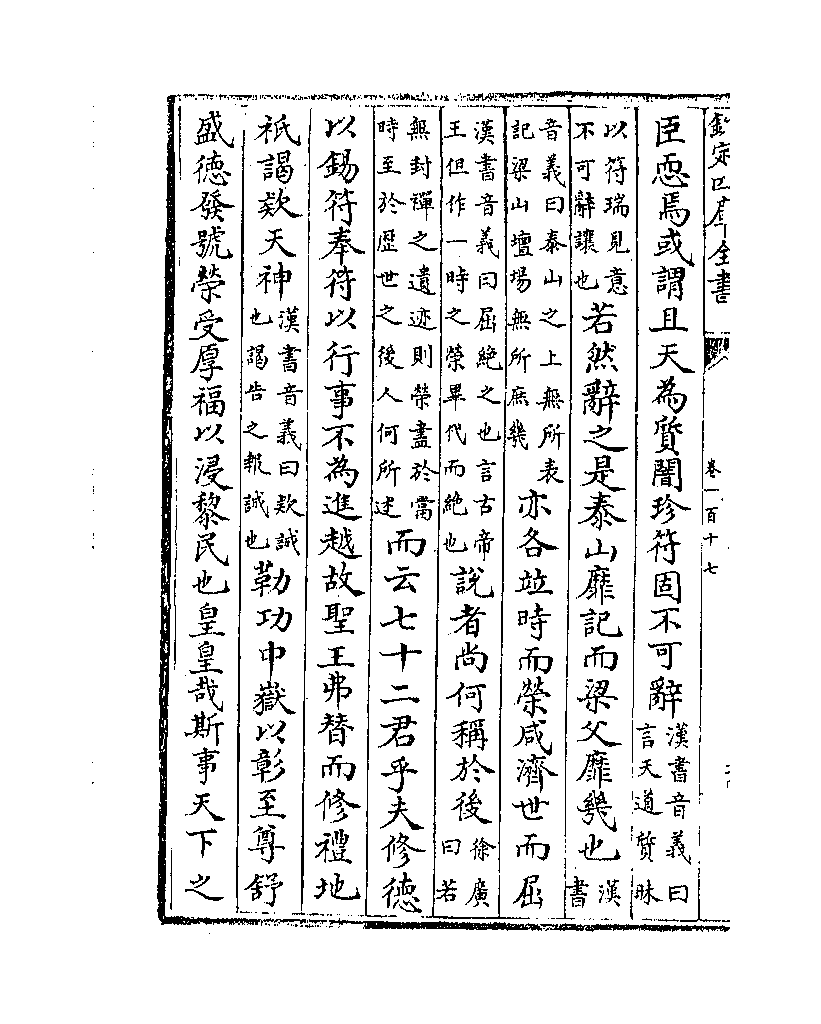 欽定四庫全書
卷一百十七
臣恧焉或謂且天為質闇珍符固不可辭漢書音義曰言天道質昧
以符瑞見意不可辭讓也若然辭之是泰山靡記而梁父靡幾也漢書
音義曰泰山之上無所表記梁山壇場無所庶幾亦各竝時而榮咸濟世而屈
漢書音義曰屈絶之也言古帝王但作一時之榮畢代而絶也說者尚何稱於後徐廣曰若
無封禪之遺迹則榮盡於當時至於歴世之後人何所述而云七十二君乎夫修德
以錫符奉符以行事不為進越故聖王弗替而修禮地
祇謁欵天神漢書音義曰欵誠也謁告之報誠也勒功中嶽以彰至尊舒
盛徳發號榮受厚福以浸黎民也皇皇哉斯事天下之